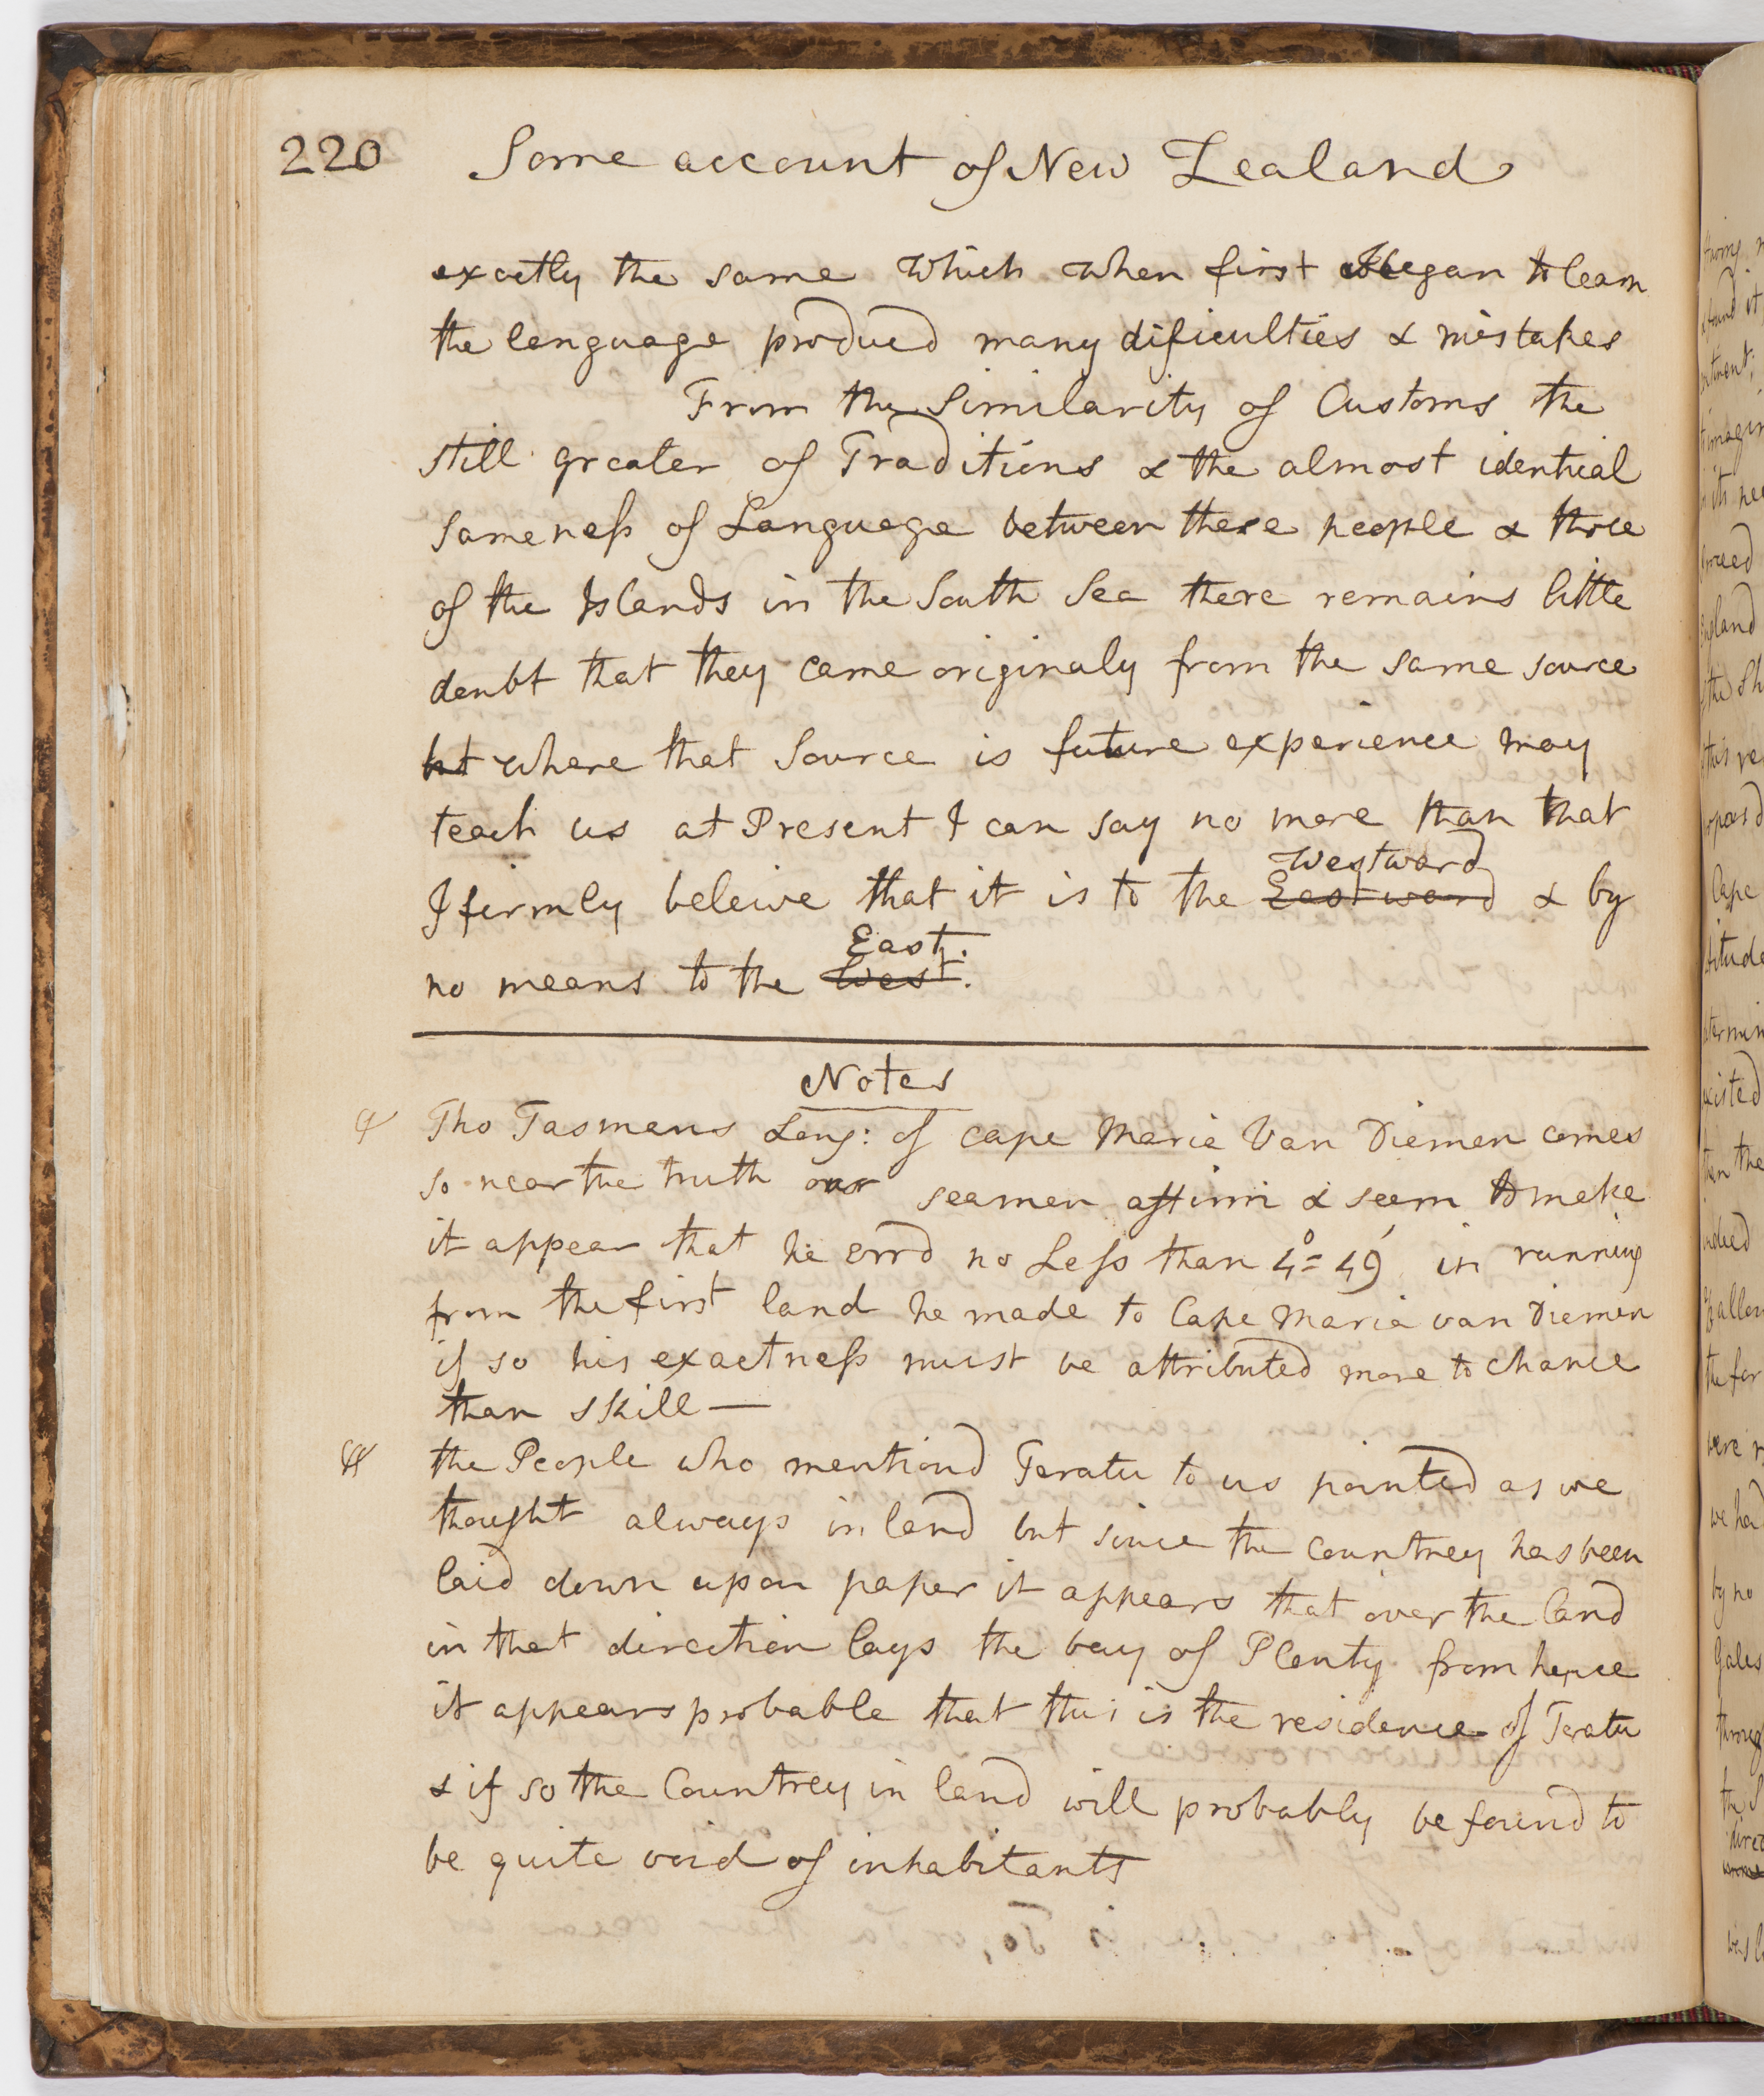 220 Some account of New Zealand
exactly the same which when first began to learn
the language produced many dificulties & mistakes
From the Similarity of Customs the
still greater of Traditions & the almost identical
sameness of Language between these people & those
of the Islands in the South Sea there remains little
doubt that they came originaly from the same source
but where that Source is future experience may
teach us at Present I can say no more than that
Westward
I firmly beleive that it is to the Eastward & by
East.
no means to the West.
Notes
Tho Tasmans Long: of Cape Maria Van Diemen comes
so near the truth our seamen affirm & seem to make
it appear that he errd no Less than 4°= 49' in running
from the first land he made to Cape Maria van Diemen
if so his exactness must be attributed more to chance
than skill—
the People who mentiond Teratu to us pointed as we
thought always inland but since the Countrey has been
laid down upon paper it appears that over the land
in that direction lays the bay of Plenty from hence
it appears probable that this is the residence of Teratu
& if so the Countrey in land will probably be found to
be quite void of inhabitants